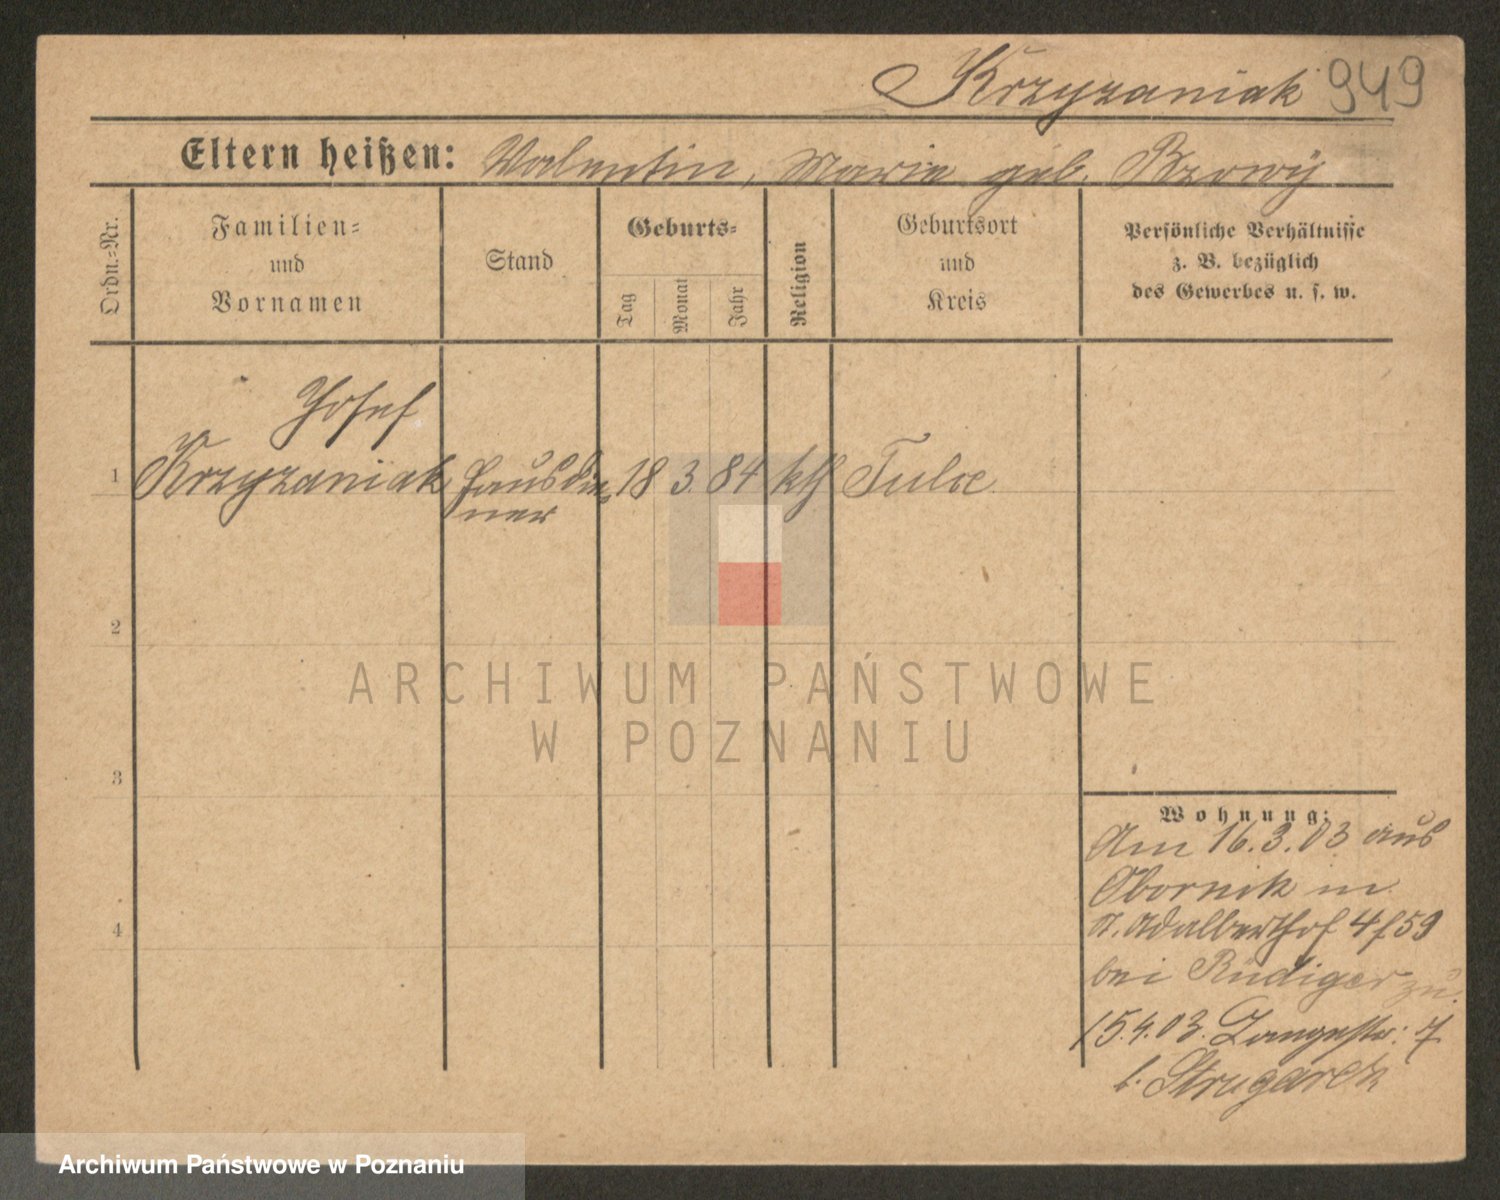 Krzyzaniak 949
Eltern heißen: Valentin, Marie geb.
Ordn.-Nr.
Familien-
und
Vornamen
Stand
Geburts-
Tag
Monat
Jahr
Religion
Geburtsort
und
Kreis
Persönliche Verhältnisse
z. B. bezüglich
des Gewerbes u. s. w.
Josef
1 Krzyzaniak Hausdie 18 3. 84 kth Tulce
ner
2
3
4
Wohnung:
Am 16.3.03 aus
Obornik in
St. Adalberthof 4/59
bei Rüdiger zu.
15.4.03. Langestr. 7
b. Strugarek
ARCHIWUM PAŃSTWOWE
W POZNANIU
Archiwum Państwowe w Poznaniu